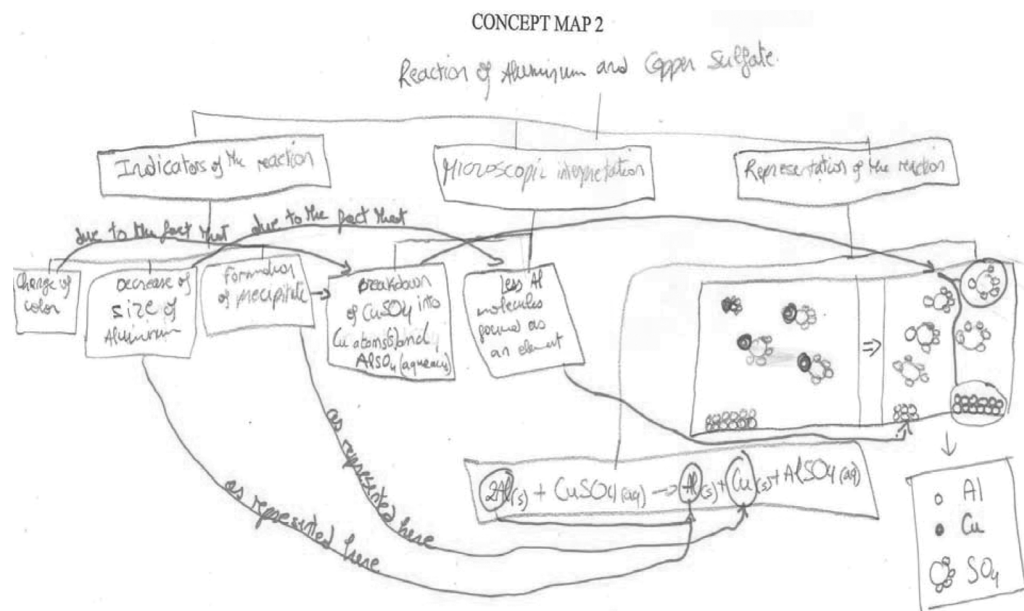 CONCEPT MAP 2
Reaction of Aluminum and Copper Sulfate.
Indicators of the reaction
Microscopic interpretation
Representation of the reaction
due to the fact that
due to the fact that
Change of
color
Decrease of
size of
Aluminum
Formation
of precipitate
Breakdown
of CuSO4 into
Cu atoms(s) and
AlSO4 (aqueous)
Less Al
molecules
found as
an element
⇒
as represented here
as represented here
2Al(s) + CuSO4 (aq) → Al(s) + Cu(s) + AlSO4 (aq)
Al
Cu
SO4